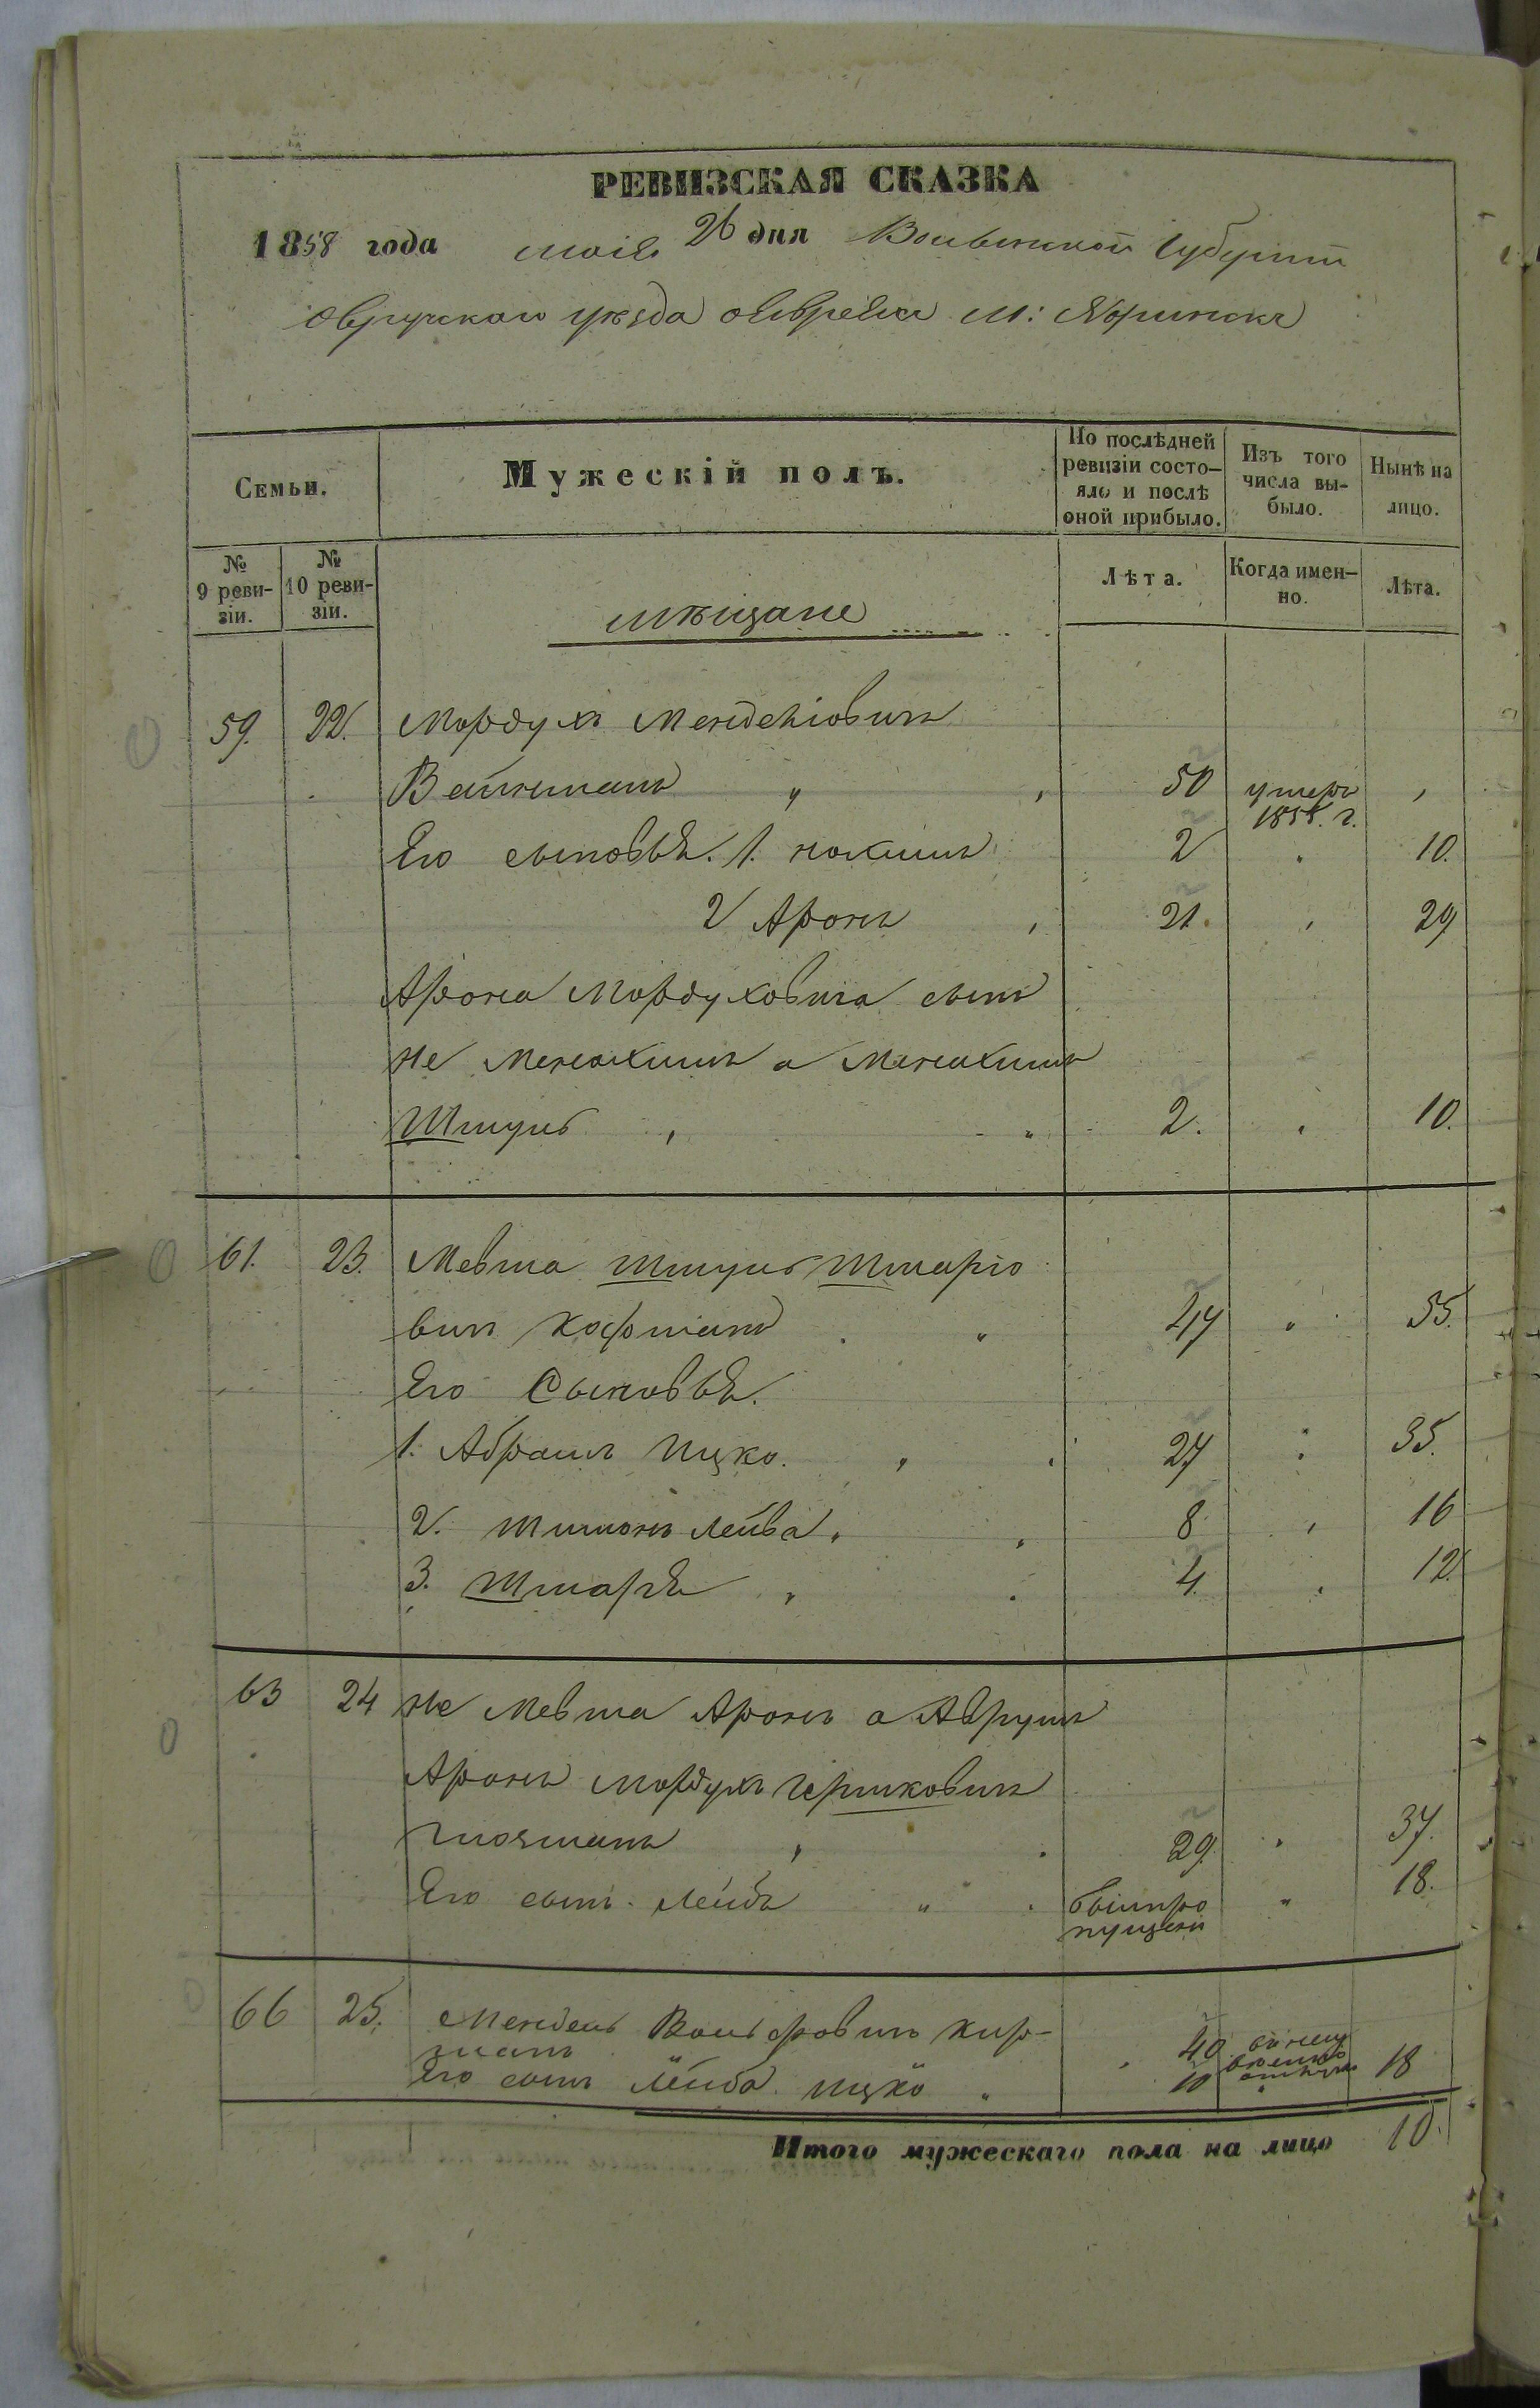 РЕВИЗСКАЯ СКАЗКА
1858 года маія 26 дня Волынской Губерніи
Овручскаго уѣзда о Евреяхъ м:
Семьи.
Мужескій полъ.
По послѣдней ревизіи состо-
яло и послѣ оной прибыло.
Изъ того числа вы-
было.
Нынѣ на лицо.
№ 9 реви-
зіи.
№ 10 реви-
зіи.
Лѣта.
Когда имен-
но.
Лѣта.
мѣщане
59. 22. Мордухъ Менделіовичъ
Вайнманъ 50 умеръ
Его сыновья. 1. Нохимъ 2 10.
2 Аронъ 21. 29
Арона Мордуховича сынъ
не Менахимъ а Менахимъ
Шмуль 2. 10.
61. 23. Мевша Шмуль Шмаріо
вичъ Кофманъ 47 55.
Его Сыновья.
1. Абрамъ Ицко. 27 35.
2. Шимонъ Лейба 8 16
3. Шмарья 4. 12
63 24 Не Мевша Аронъ а Аврумъ
Аронъ Мордухъ Гершковичъ
29. 37.
Его сынъ Лейба былъ про
пущенъ 18.
66 25. Мендель Вольфовичъ
40
Его сынъ Лейба Ицко 10 18
Итого мужескаго пола на лицо 10.